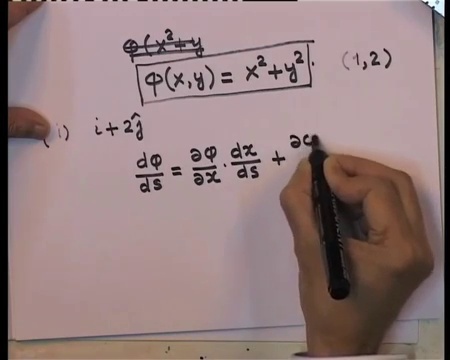 φ(x²+y
φ(x,y) = x²+y². (1,2)
(i) i+2ĵ
dφ/ds = ∂φ/∂x · dx/ds + ∂φ